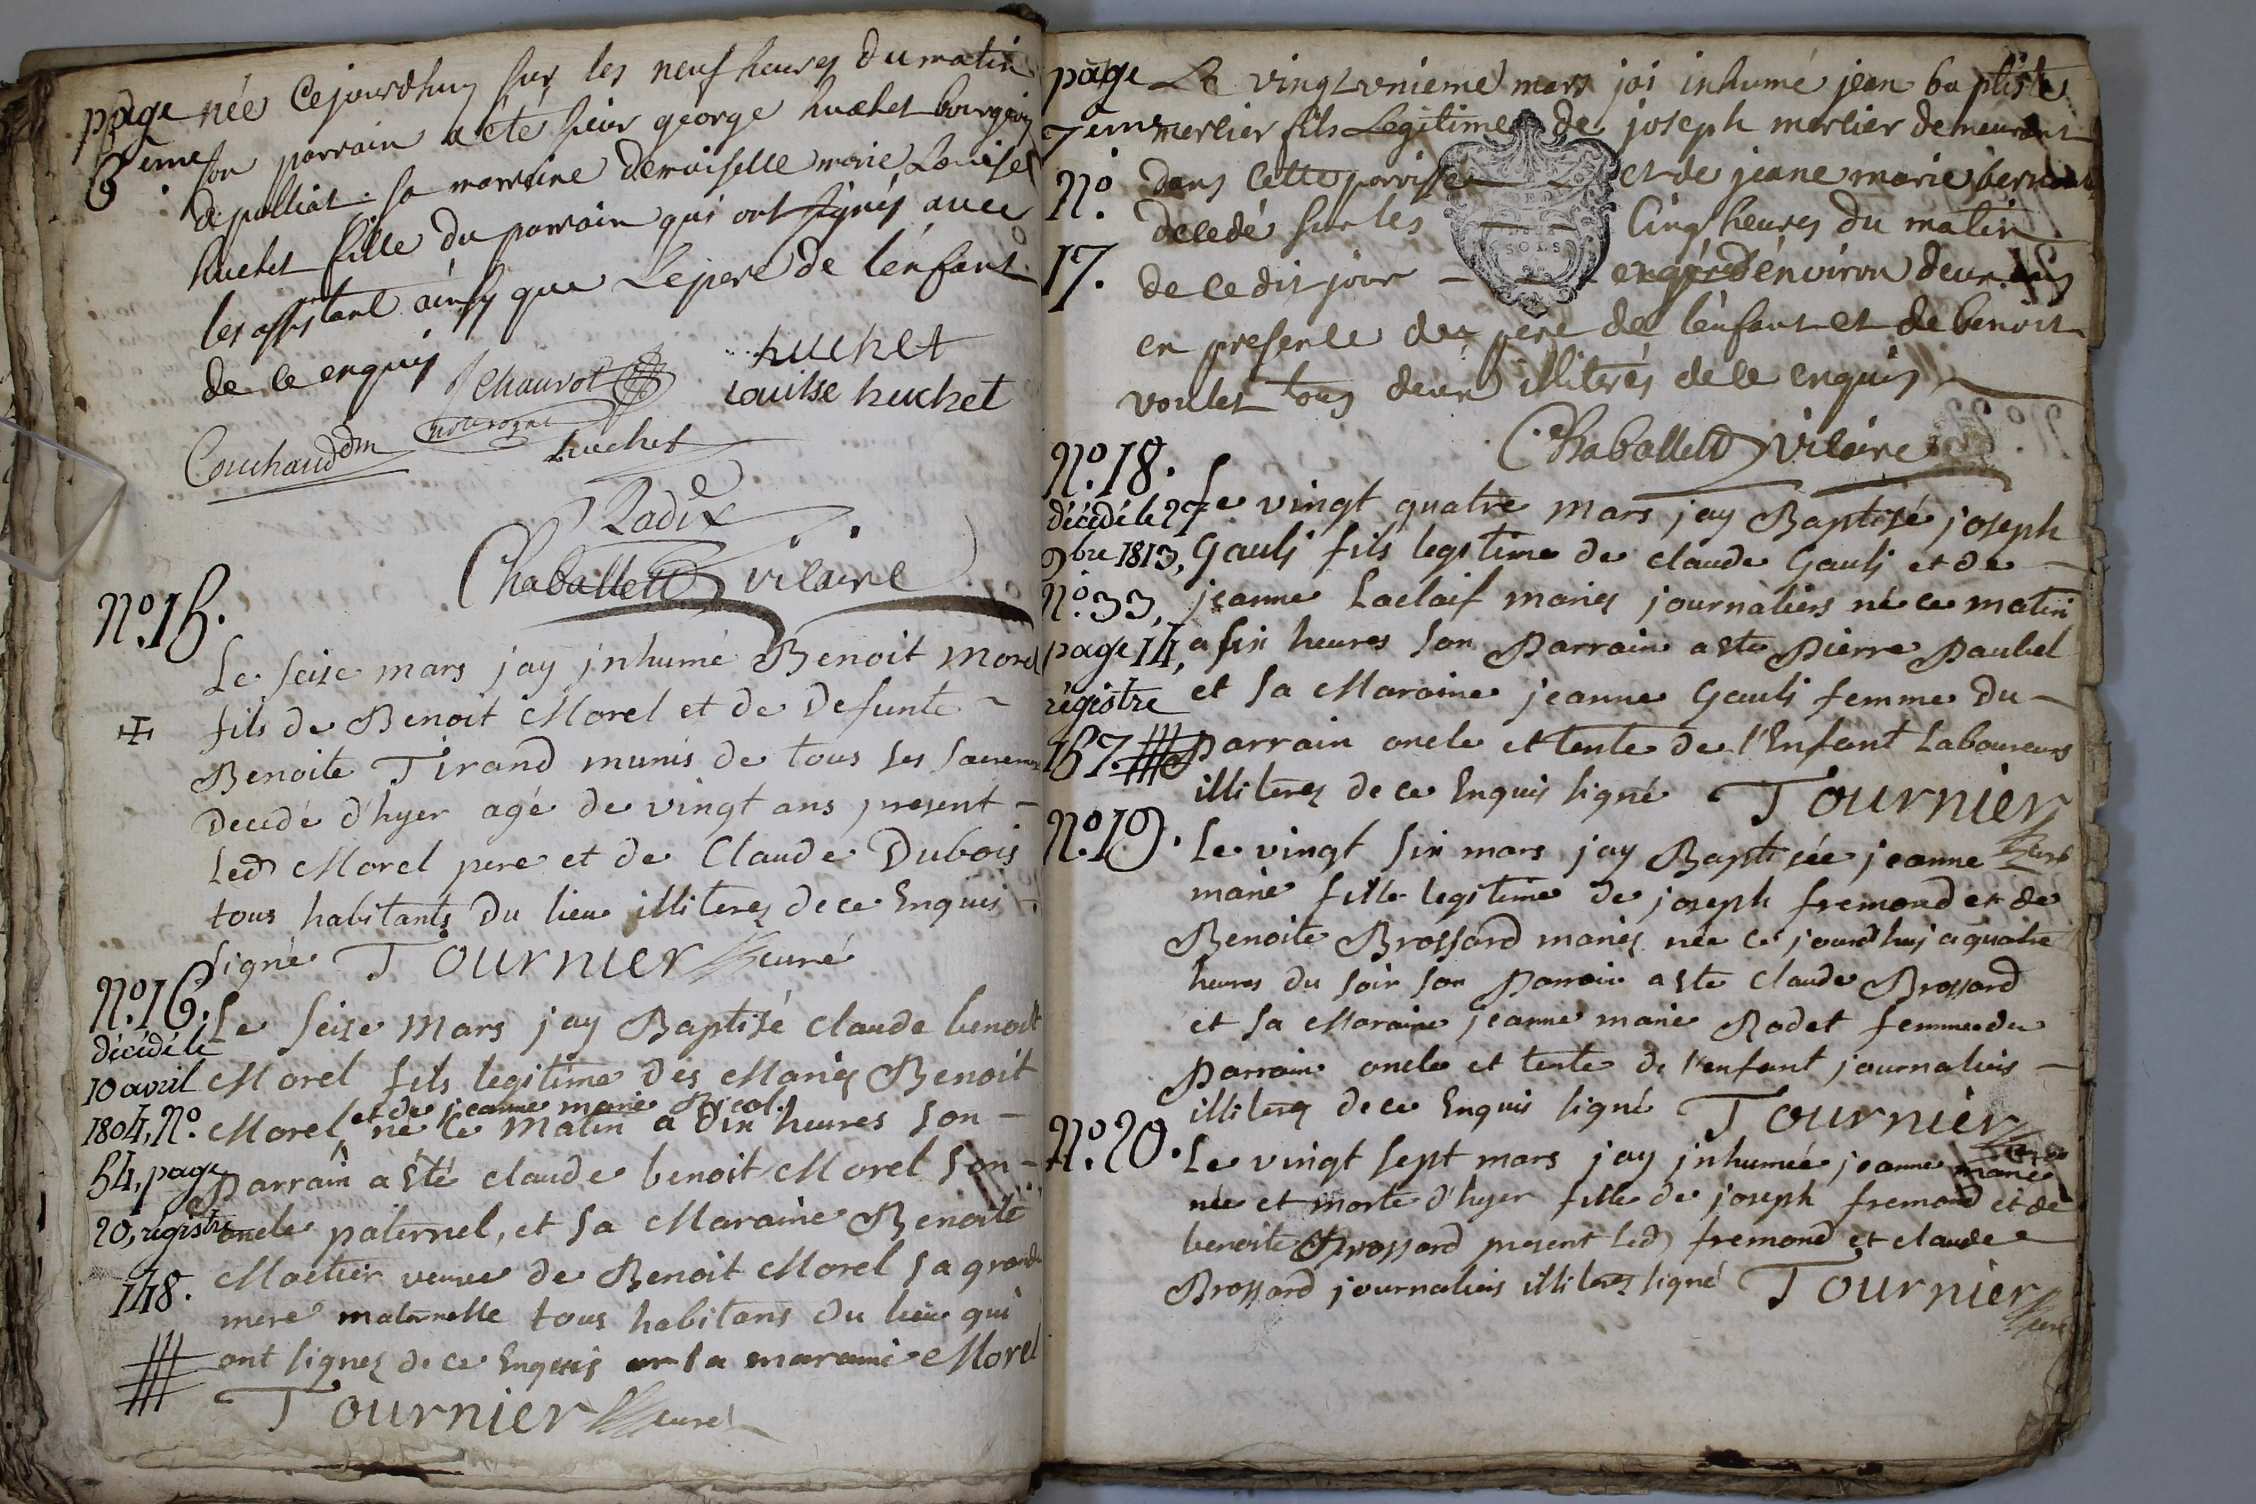 page
6eme
née Cejourdhuy sur les neuf heures du matin
son parrain a été sieur george huchet bourgois
de polliat. sa marraine demoiselle marie Louise
huchet fille du parrain qui ont signés avec
les assistant ainsy que Le pere de l'enfant
de ce enquis
huchet
chauvot
Louise huchet
Couchaud dm
huchet
Radix
Chaballett vicaire
N.º 15.
Le seise mars jay jnhumé Benoit Morel
fils de Benoit Morel et de Defunte ~
Benoite Tirand munis de tous ses sacrem
Decedé d'hyer agé de vingt ans present –
Led Morel pere et de Claude Dubois
tous habitants du lieu illiteres de ce Enquis
signé Tournier curé
N.º 16.
décédé le
10 avril
1804, N.º
54, page
20, registre
148.
Le seise Mars jay Baptisé claude benoit
Morel fils legitime des Mariés Benoit
et de jeanne marie Nicol.
Morel né Ce Matin a dix heures son –
Parrain a Eté claude benoit Morel son –
oncle paternel, et sa Maraine Benoite
veuve de Benoit Morel sa grande
mere maternelle tous habitans du lieu qui
ont signez de ce Enquis la maraine Morel
Tournier curé
page
7eme
N.º
17.
Le vingt unieme mars jai inhumé jean baptiste
merlier fils Legitime de joseph merlier demeurant
dans Cette paroisse et de jeane marie
decedé sur les Cinq heures du matin
de ce dit jour – agé d'environ deux ans
en presence des pere de l'enfant et de benoit
voulet tous deux illiterés de ce enquis
SOLS
Chaballett vicaire
N.º 18.
décédé le 27
9bre 1813,
N.º 33,
page 14,
régistre
157.
Le vingt quatre mars jay Baptisé joseph
Gauli fils legitime de claude Gauli et de –
jeanne Laclaif mariés journaliers né ce matin
a six heures son Parrain a Eté Pierre Paubel
et sa Maraine jeanne Gauli femme Du –
Parrain oncle et tente de l'Enfant Laboureurs
illiteres de ce Enquis signé Tournier
curé
N.º 19.
Le vingt six mars jay Baptisée jeanne
marie fille legitime de joseph fremond et de
Benoite Brossard mariés née ce jourdhuj a quatre
heures du soir son Parrain a Eté Claude Brossard
et sa Maraine jeanne marie Rodet femme du
Parrain oncle et tente de l'enfant journaliers –
illiteres de ce Enquis signé Tournier
curé
N.º 20.
Le vingt sept mars jay jnhumée jeanne marie
née et morte d'hyer fille de joseph fremond et de
benoite Brossard present Led fremond et claude
Brossard journaliers illiteres signé Tournier
curé